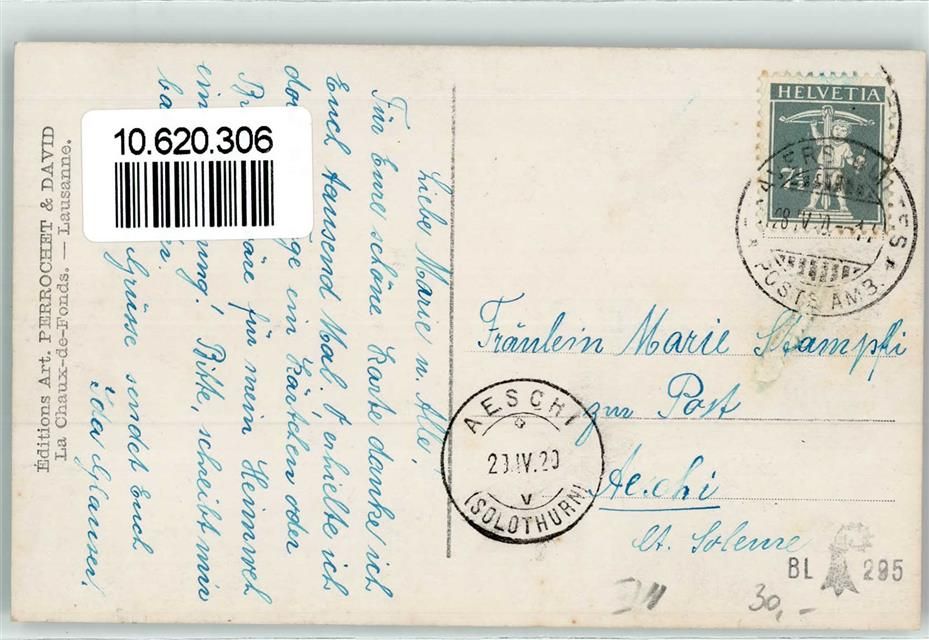 Liebe Marie u. Alle!
Für Eure schöne Karte danke ich
Euch tausend Mal. O erhielte ich
doch ein Kärtchen oder
wäre für mein Heimweh
Bitte, schreibt mir
ba
Grüsse sendet Euch
Ida Glauser!
10.620.306
Éditions Art. PERROCHET & DAVID
La Chaux-de-Fonds. — Lausanne.
HELVETIA
7½
28.IV.20
POSTE AMB.
Fräulein Marie Stampfli
zur Post
Aeschi
Ct. Soleure
AESCHI
29.IV.20
V
(SOLOTHURN)
BL 295
30,-